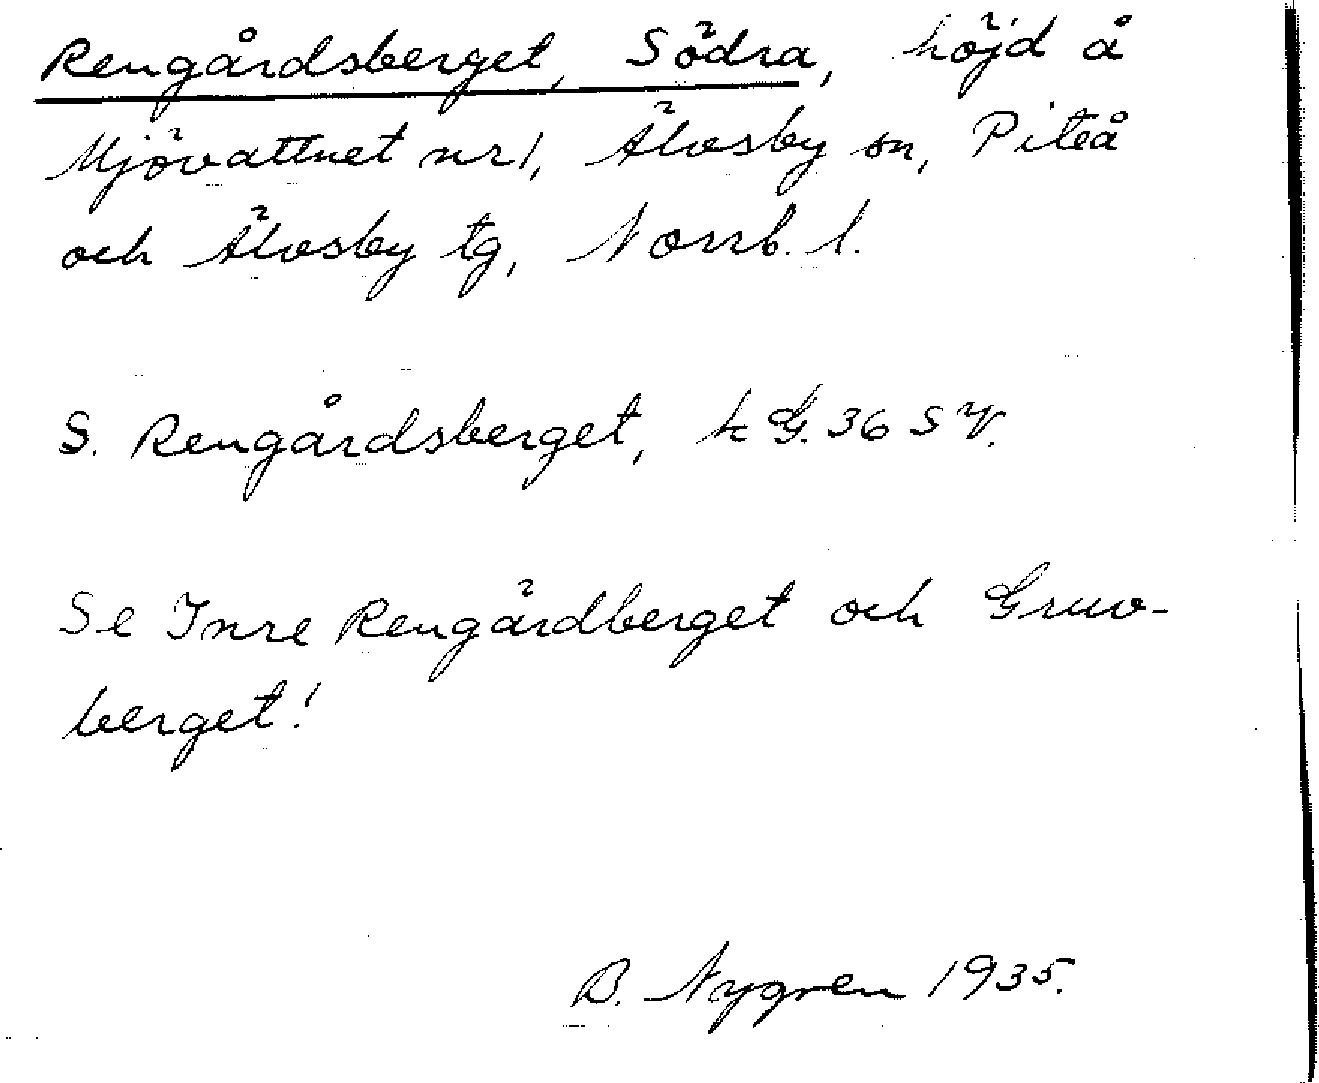 Rengårdsberget, Södra, höjd å
Mjövattnet nr 1, Älvsby sn, Piteå
och Älvsby tg, Norrb. l.
S. Rengårdsberget, k G. 36 S V.
Se Inre Rengårdberget och Gruv-
berget!
B. Nygren 1935.